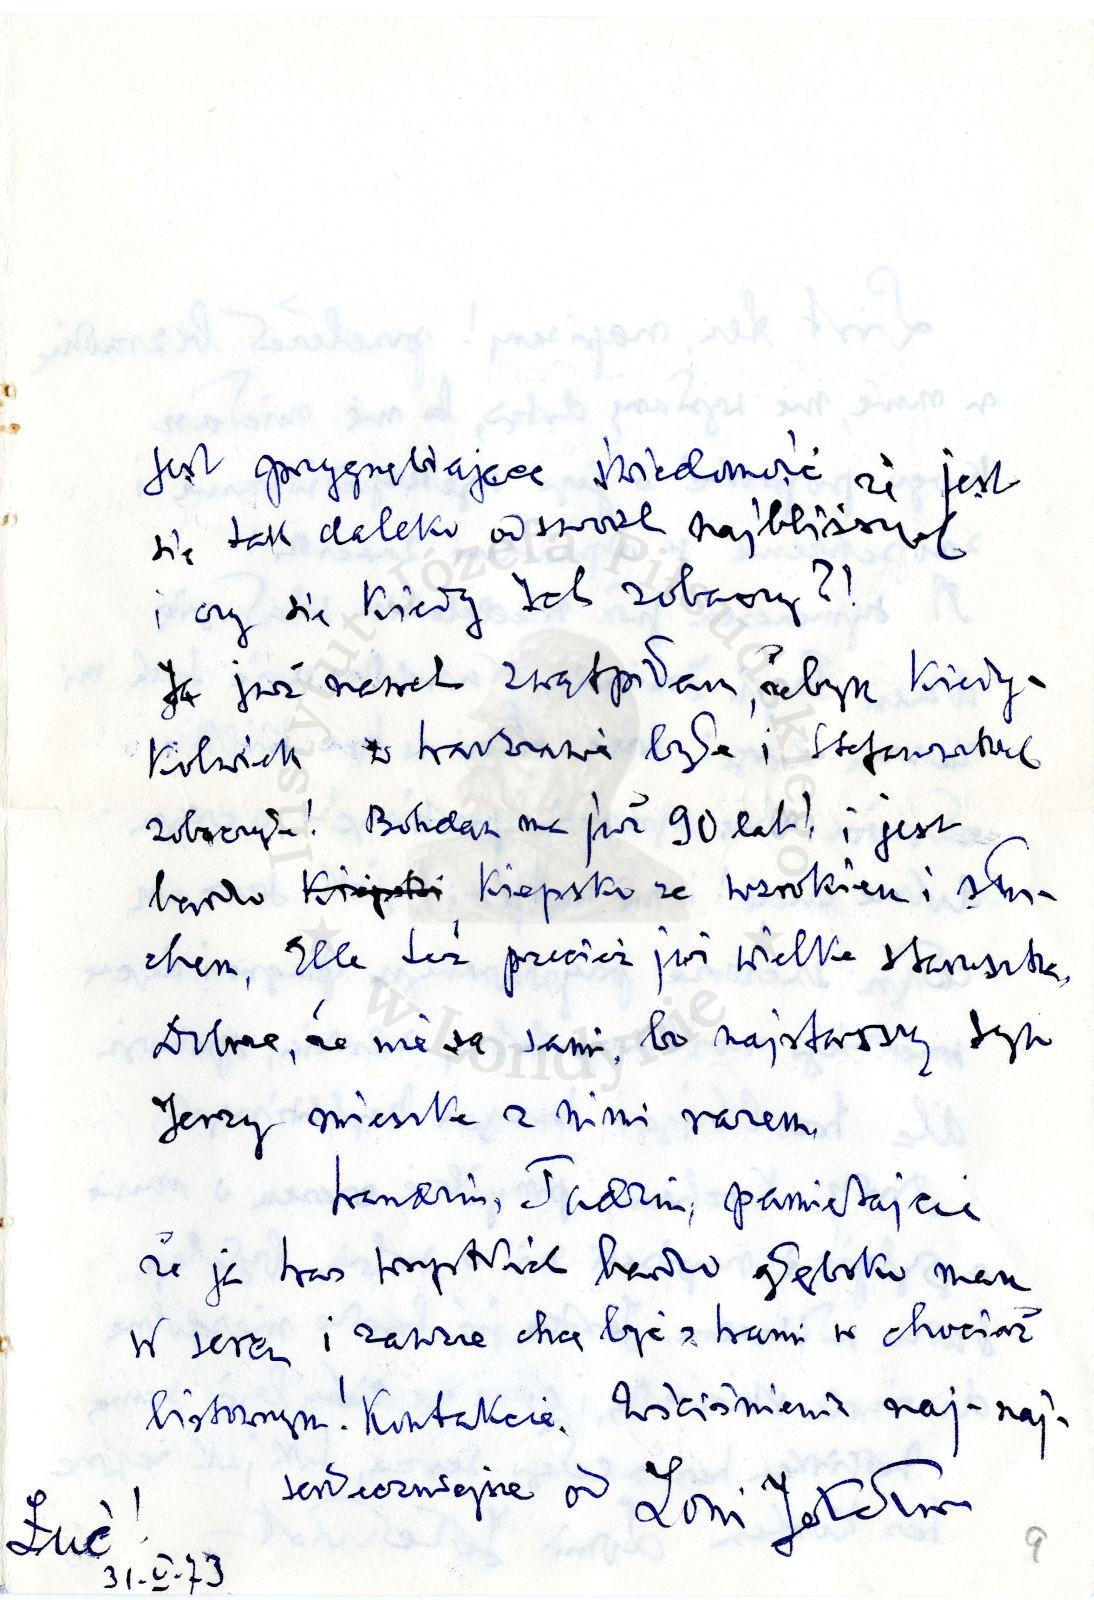 Jest przygnębiające świadomość że jest
się tak daleko od swoich najbliższych
i czy się kiedy ich zobaczy?!
Ja już nawet zwątpiłam, żebym kiedy-
kolwiek w Warszawie była i Stefanostwa
zobaczyła! Bohdan ma już 90 lat! i jest
bardzo Kiepski kiepsko ze wzrokiem i słu-
chem, Ella też przecież już wielka staruszka.
Dobrze, że nie są sami, bo najstarszy syn
Jerzy mieszka z nimi razem.
Wandziu, Tadziu, pamiętajcie
że ja Was wszystkich bardzo głęboko mam
w sercu i zawsze chcę być z Wami w chociaż
listownym! Kontakcie. Uściśnienia naj-naj-
serdeczniejsze od Loni
31-V-73
9
Instytut Józefa Piłsudskiego
w Londynie